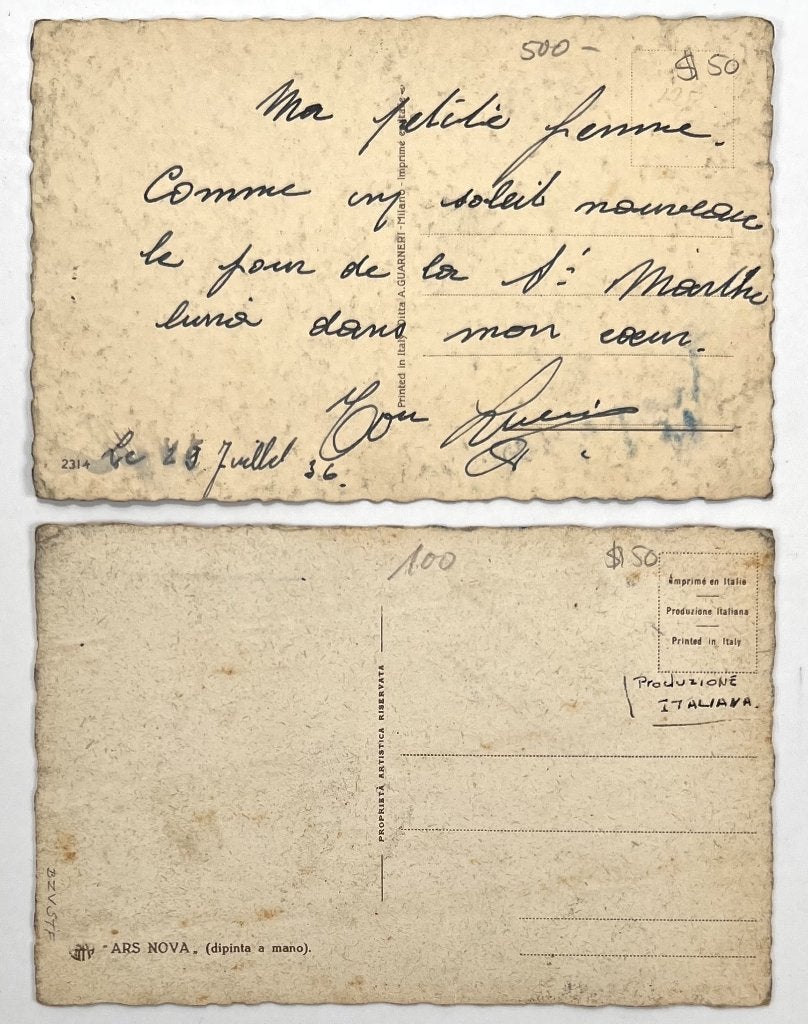 500 –
$ 50
Ma petite femme.
Comme un soleil nouveau
le jour de la Ste Marthe
luira dans mon cœur.
Ton
Printed in Italy Ditta A. GUARNERI - Milano - Imprimé en Italie
2314
Le 29 Juillet 36.
100
$ 50
Imprimé en Italie
Produzione Italiana
Printed in Italy
PRODUZIONE
ITALIANA.
PROPRIETÀ ARTISTICA RISERVATA
BZVSTF
"ARS NOVA" (dipinta a mano).